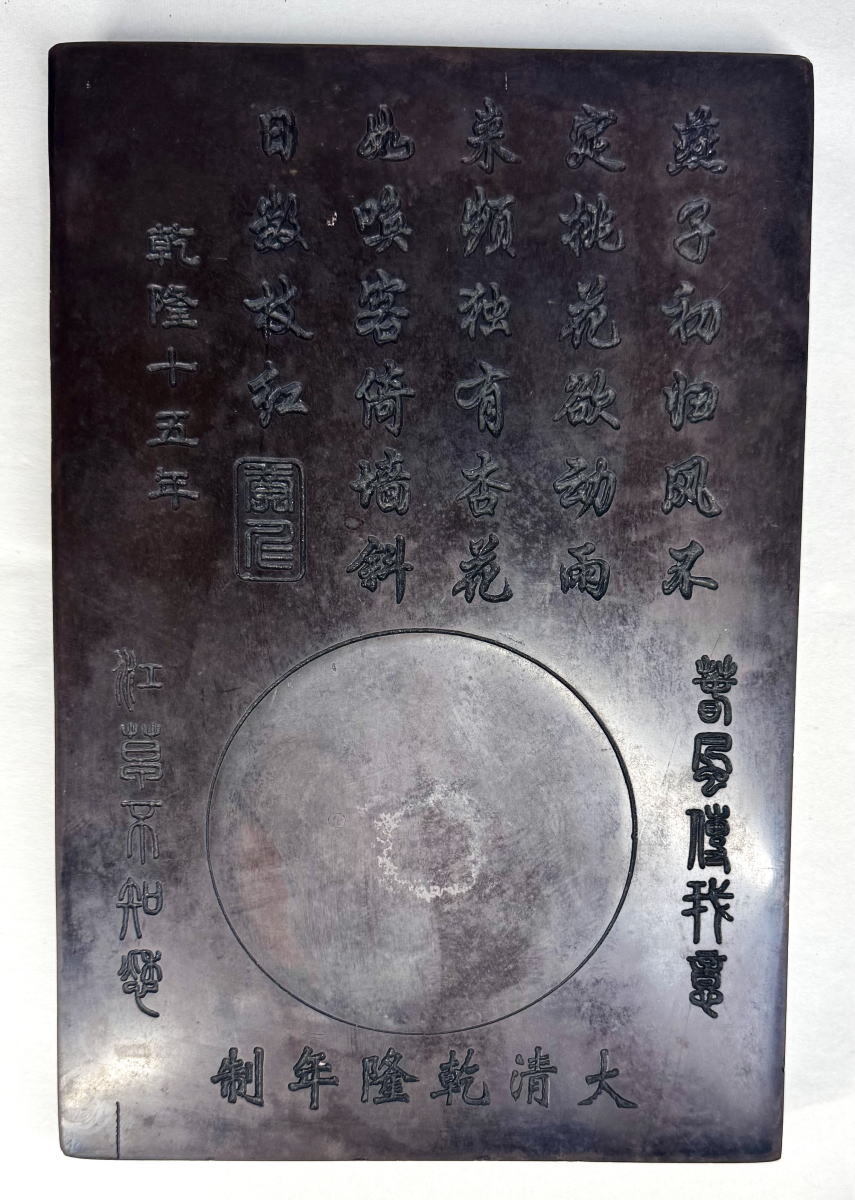 燕子初归风不
定桃花欲动雨
来频独有杏花
如唤客倚墙斜
日数枝红
乾隆十五年
春風傳我意
江草不知愁
大清乾隆年制